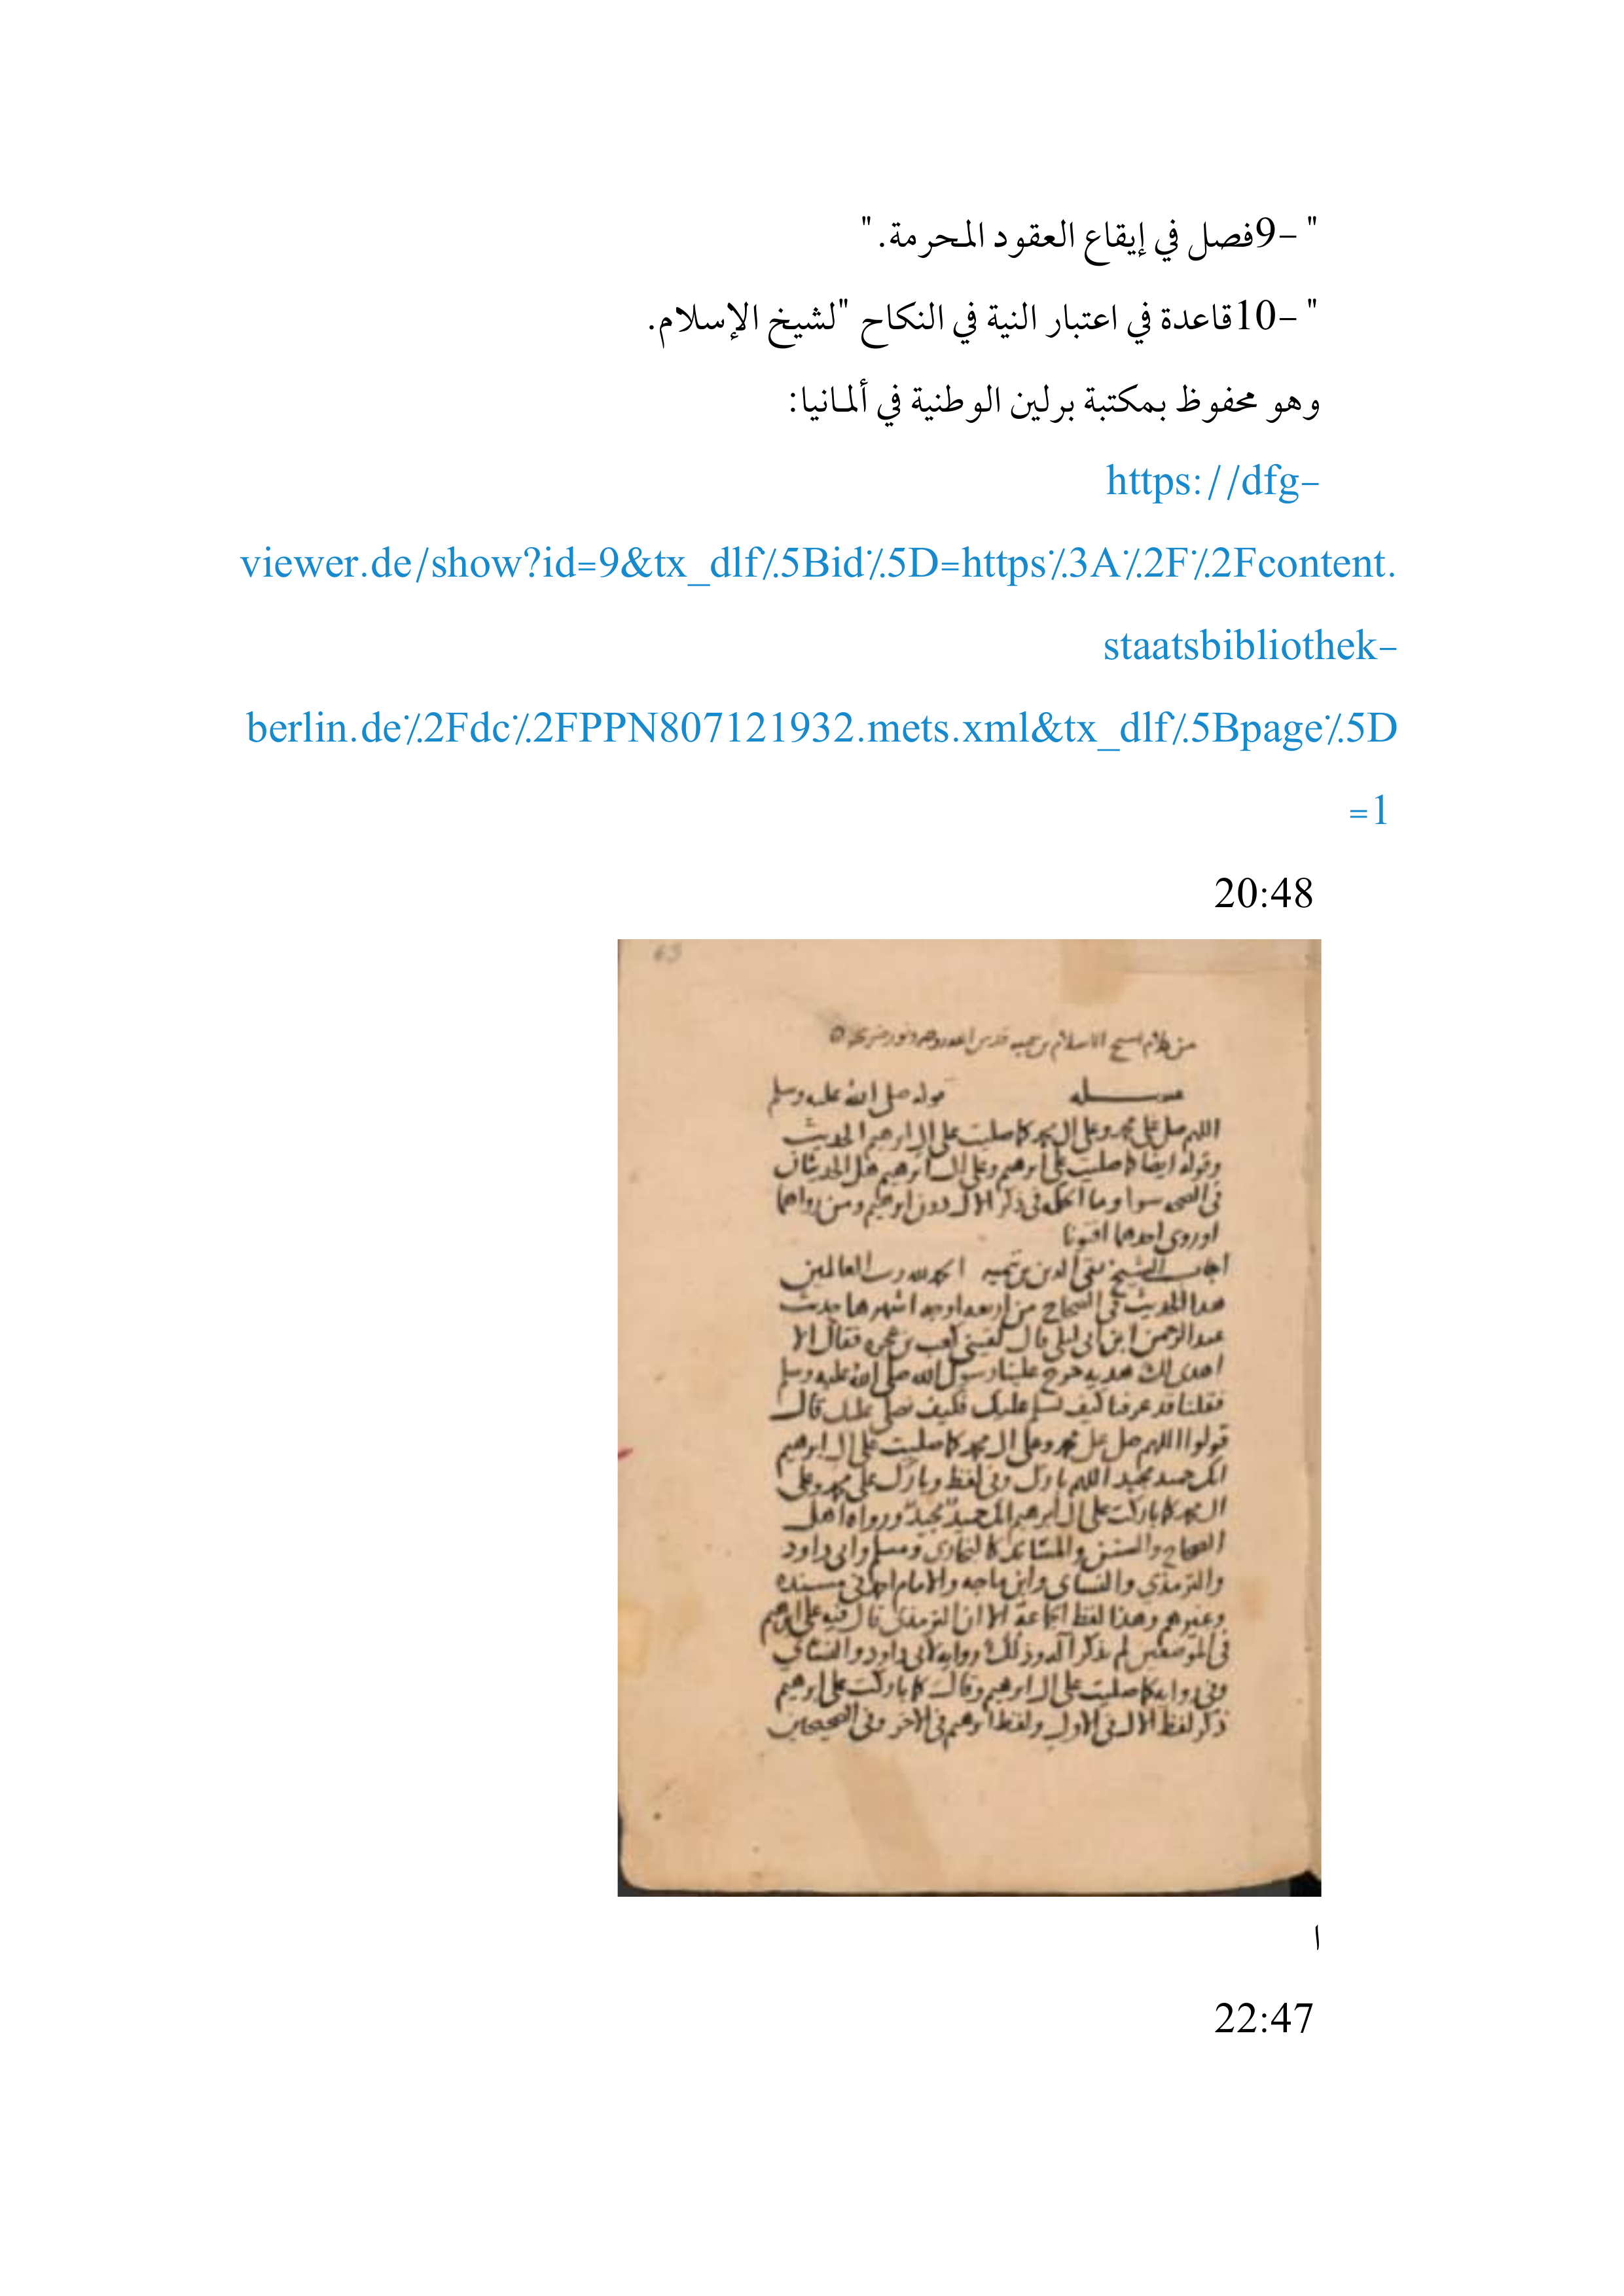 " -9فصل في إيقاع العقود المحرمة."
" -10قاعدة في اعتبار النية في النكاح "لشيخ الإسلام.
وهو محفوظ بمكتبة برلين الوطنية في ألمانيا:
https://dfg-
viewer.de/show?id=9&tx_dlf%5Bid%5D=https%3A%2F%2Fcontent.
staatsbibliothek-
berlin.de%2Fdc%2FPPN807121932.mets.xml&tx_dlf%5Bpage%5D
=1
20:48
63
من كلام شيخ الاسلام بن تيميه قدس الله روحه ونور ضريحه
مسله قوله صلى الله عليه وسلم
اللهم صل على محمد وعلى ال محمد كما صليت على ال ابرهيم الحديث
وقوله ايضا كما صليت على ابرهيم وعلى ال ابرهيم هل الحديثان
في الصحه سوا وما الحكمه في ذكر الال دون ابرهيم ومن رواهما
اوروى احدهما افتونا
اجاب الشيخ تقي الدين بن تيميه الحمد لله رب العالمين
هذا الحديث في الصحاح من اربعه اوجه اشهرها حديث
عبد الرحمن ابن ابي ليلى قال لقيني كعب بن عجره فقال الا
اهدى لك هديه خرج علينا رسول الله صلى الله عليه وسلم
فقلنا قد عرفنا كيف نسلم عليك فكيف نصلي عليك قال
قولوا اللهم صل على محمد وعلى ال محمد كما صليت على ال ابرهيم
انك حميد مجيد اللهم بارك وفي لفظ وبارك على محمد وعلى
ال محمد كما باركت على ال ابرهيم انك حميد مجيد ورواه اهل
الصحاح والسنن والمسانيد كالبخاري ومسلم وابي داود
والترمذي والنساي وابن ماجه والامام احمد في مسنده
وغيرهم وهذا لفظ الجماعة الا ان الترمذي قال فيه على ابرهيم
في الموضعين لم يذكر اله وذلك روايه لابي داود والنساي
وفي روايه كما صليت على ال ابرهيم وقال كما باركت على ابرهيم
ذكر لفظ الال في الاول ولفظ ابرهيم في الاخر وفي الصحيحين
ا
22:47